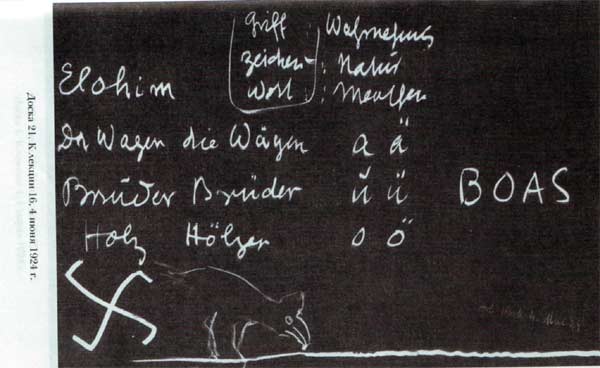 Griff : Wahrnehmung
Zeichen : Natur
Elohim
Wort : Menschen
Der Wagen die Wägen a ä
Brŭder Brüder ŭ ü BOAS
Holz Hölzer o ö
Доска 21. К лекции 16, 4 июня 1924 г.